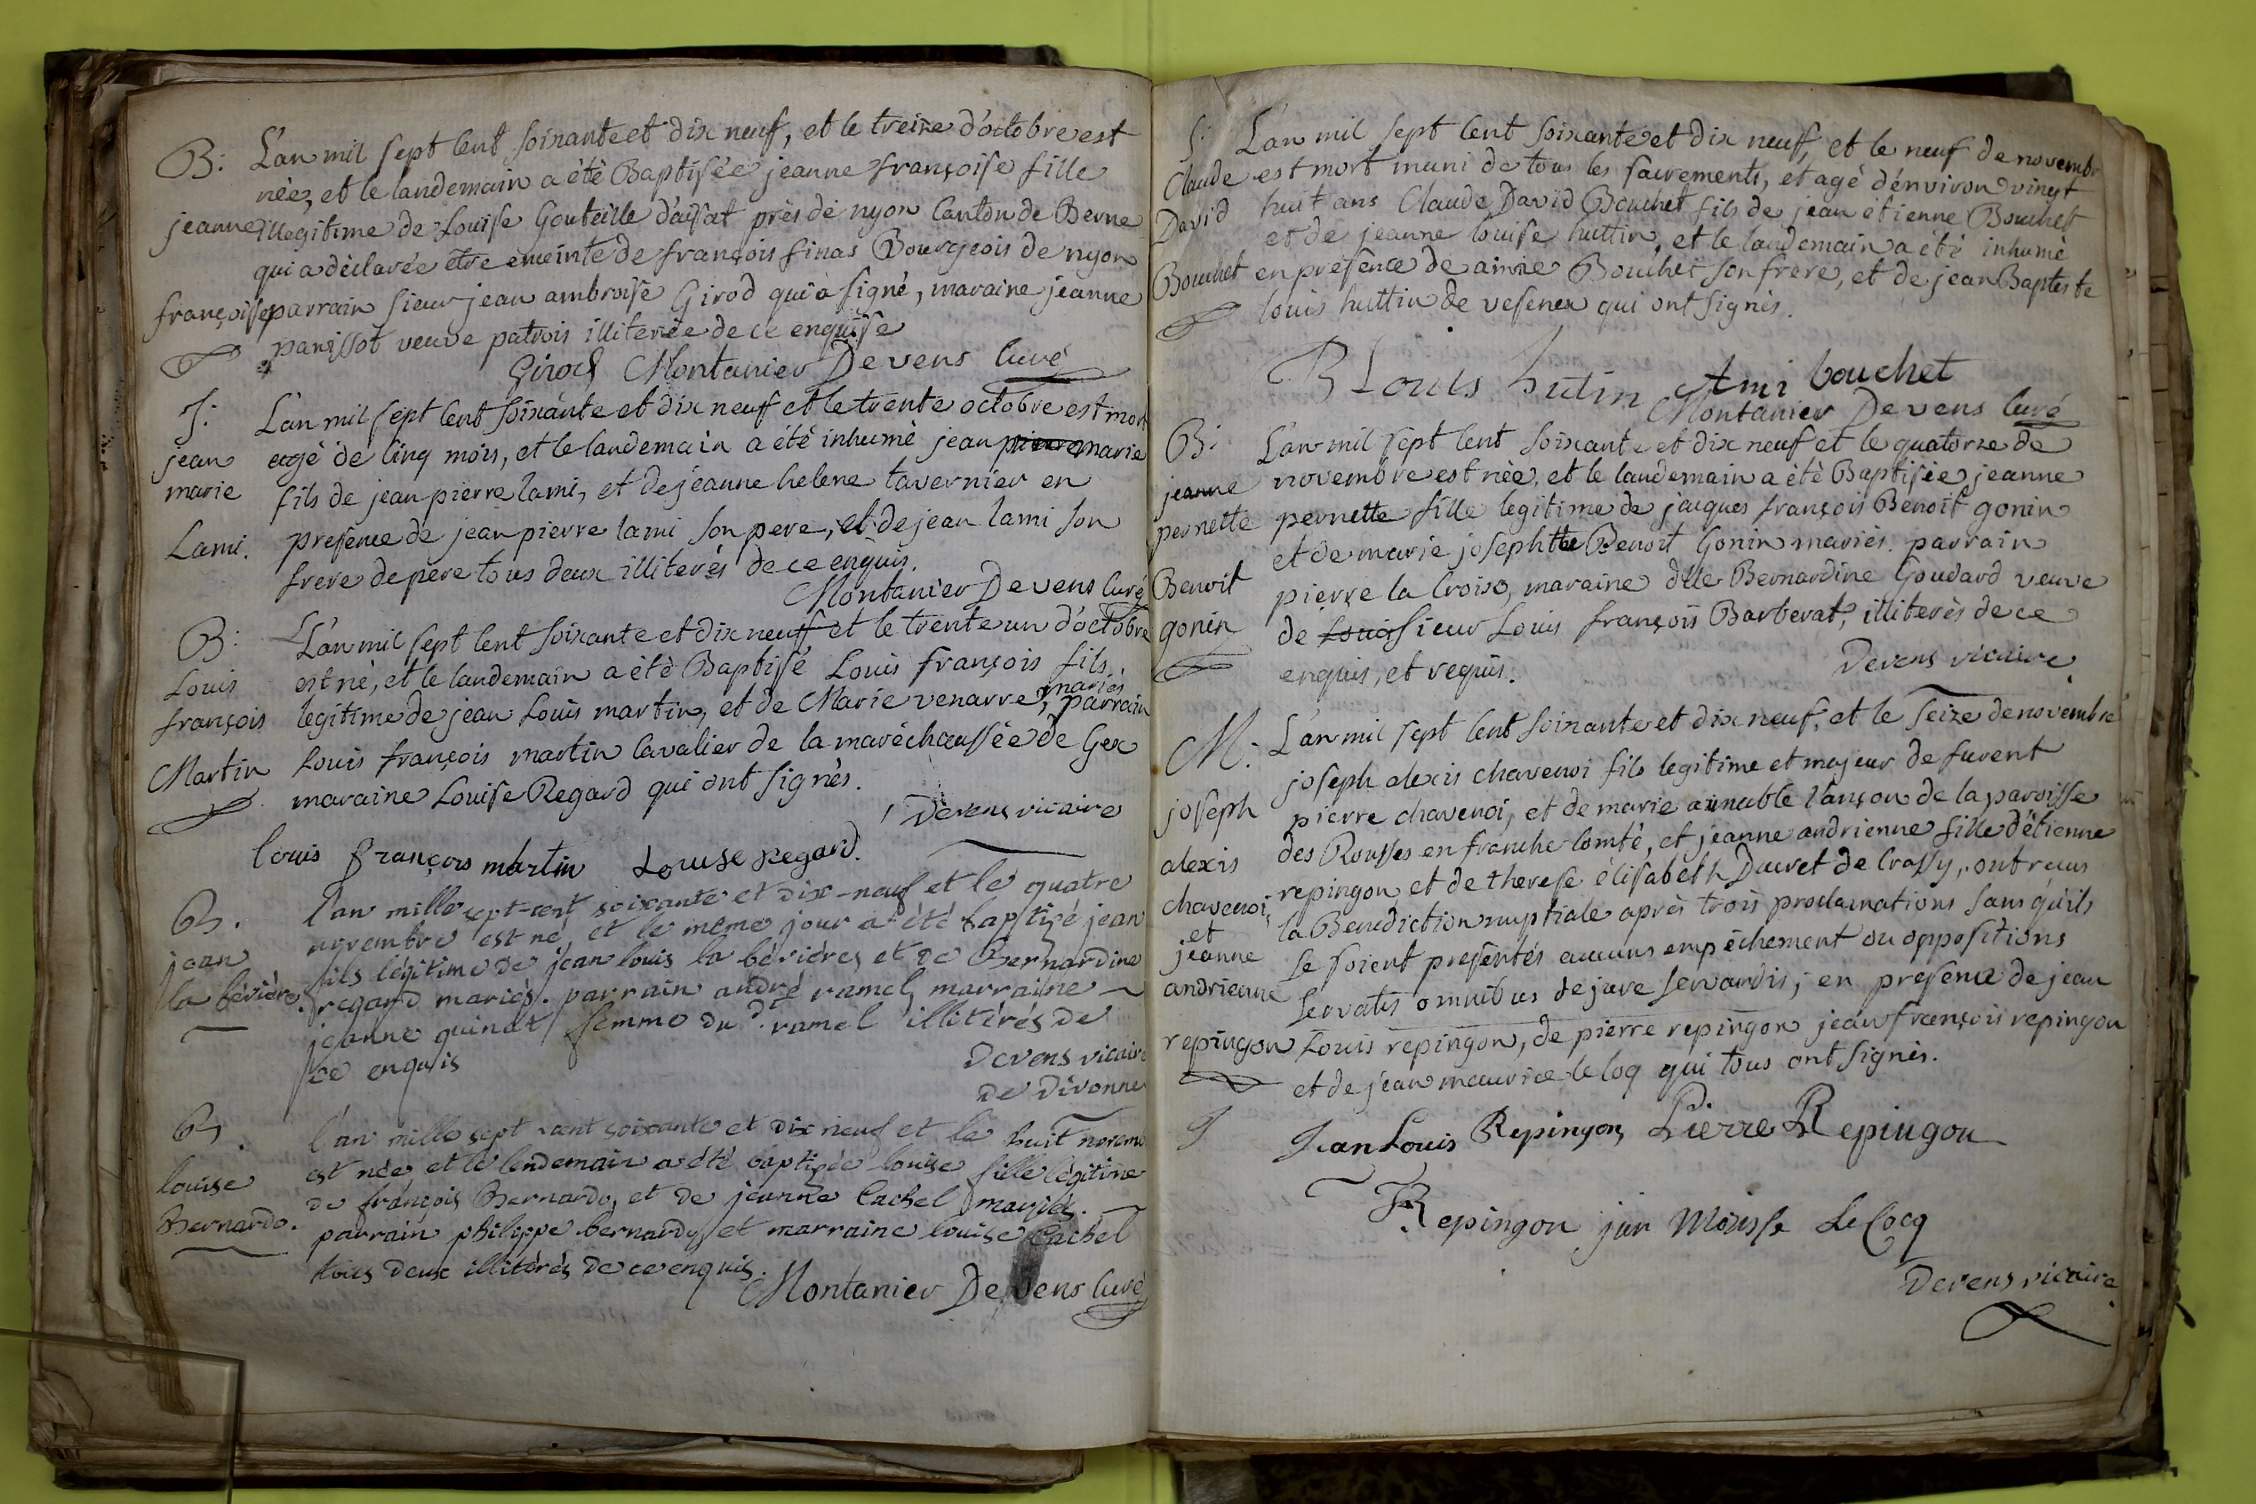 B: L'an mil sept cent soixante et dix neuf, et le treize d'octobre est
née, et le landemain a été Baptisée jeanne françoise fille
jeanne illegitime de Louise Gouteille d'assat près de nyon Canton de Berne
qui a déclarée être enceinte de françois finas Bourgeois de nyon
françoise parrain sieur jean ambroise Girod qui à signé, maraine jeanne
panissot veuve patrois illiterée de ce enquise
Girod Montanier Devens Curé
S: L'an mil sept cent soixante et dix neuf et le trente octobre est mort
jean agé de cinq mois, et le landemain a été inhumé jean pierre marie
marie fils de jean pierre lami, et de jéanne helene tavernier en
Lami. presence de jean pierre lami son pere, et de jean lami son
frere de pere tous deux illiterés de ce enquis.
Montanier Devens Curé
B: L'an mil sept cent soixante et dix neuf et le trente un d'octobre
Louis est né, et le landemain a été Baptisé Louis françois fils
mariés
françois legitime de jean Louis martin, et de Marie venarre, parrain
Martin Louis françois martin Cavalier de la maréchaussée de Gex
maraine Louise Regard qui ont signés.
Devens vicaire
louis françois martin Louise regard.
B. l'an mille sept-cent soixante et dix-neuf et le quatre
novembre est né, et le même jour a été baptizé jean
jean fils légitime de jean louis la bévière, et de Bernardine
la bévière. regard mariés. parrain andré ramel, marraine
jeanne quinat femme du dt ramel illitérés de
ce enquis
Devens vicaire
de Divonne
B. l'an mille sept cent soixante et dix neuf et le huit novem
est née et le lendemain a été baptizée louise fille légitime
louise de françois Bernardo, et de jeanne Cachel mariés.
Bernardo. parrain philippe bernardo, et marraine louise Cachel
tous deux illitérés de ce enquis.
Montanier Devens Curé
S: L'an mil sept cent soixante et dix neuf, et le neuf de novembre
Claude est mort muni de tous les sacrements, et agé d'énviron vingt
David huit ans Claude David Bouchet fils de jean étienne Bouchet
et de jeanne louise huttin, et le landemain a été inhumé
Bouchet en présence de aimé Bouchet son frere, et de jean Baptiste
louis huttin de vesenex qui ont signés.
B Louis hutin Ami bouchet
Montanier Devens Curé
B: L'an mil sept cent soixante et dix neuf et le quatorze de
jeanne novembre est née, et le landemain a été Baptisée jeanne
pernette pernette fille legitime de jacques françois Benoit gonin
et de marie josephtte Benoit Gonin mariés. parrain
Benoit pierre la Croix, maraine dlle Bernardine Goudard veuve
gonin de Louis sieur Louis françois Barberat, illiterés de ce
enquis, et requis.
Devens vicaire
M: L'an mil sept cent soixante et dix neuf, et le seize de novembre
joseph alexis chavenoi fils legitime et majeur de furent
joseph pierre chavenoi, et de marie aimable Vançon de la paroisse
alexis des Rousses en franche Comté, et jeanne andrienne fille d'étienne
chavenoi, repingon et de therese élisabeth Ducret de Crassy, ont reçus
et la Benediction nuptiale après trois proclamations sans qu'ils
jeanne se soient presentés aucuns empêchement ou oppositions
andrienne servatis omnibus de jure servandis; en presence de jean
repingon Louis repingon, de pierre repingon jean françois repingon
et de jean maurice le Coq qui tous ont signés.
Jean Louis Repingon Pierre Repingon
JF Repingon jan Moisse Le Cocq
Devens vicaire